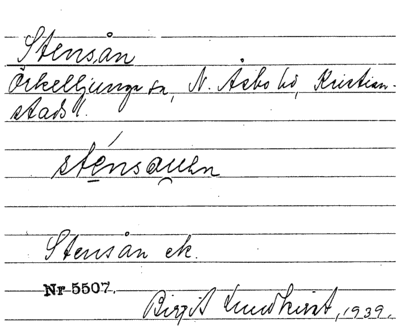 Stensån
Örkelljunga sn, N. Åsbo hd, Kristian-
stads l.
sténsauen
Stensån ek.
Nr 5507.
Birgit Lundkvist, 1939.